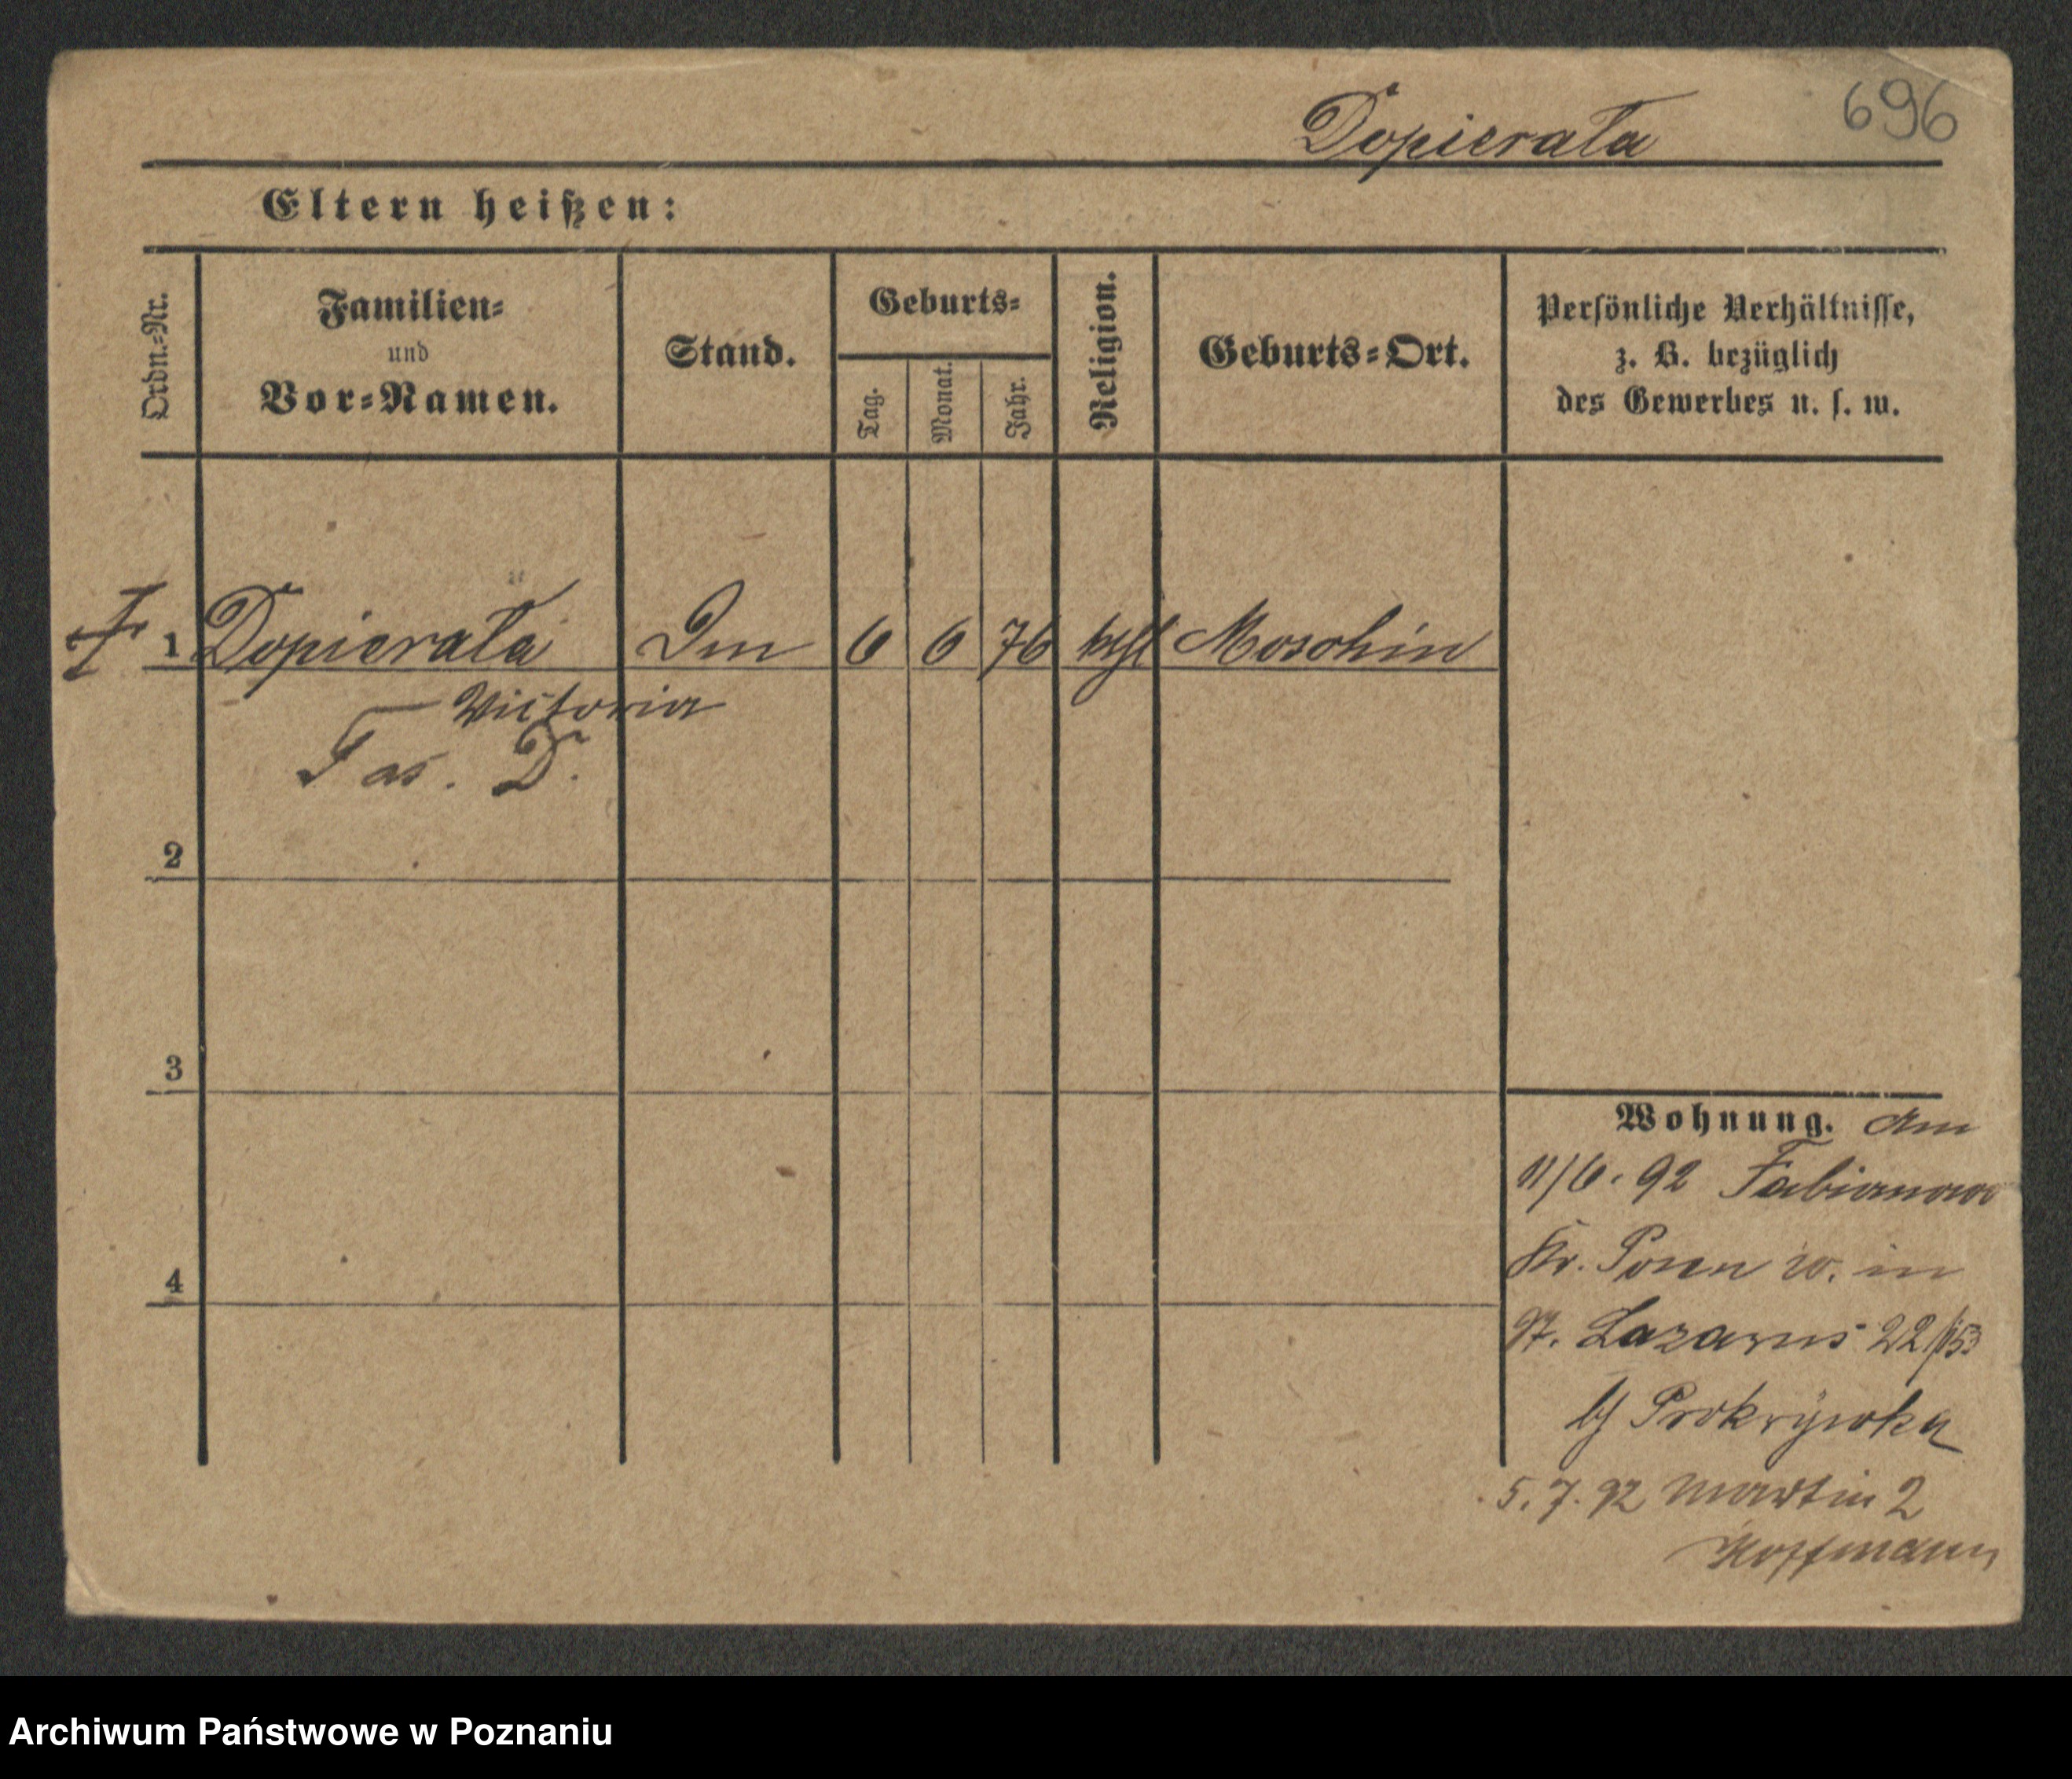 696
Dopierała
Eltern heißen:
Ordn.-Nr.
Familien-
und
Vor-Namen.
Stand.
Geburts-
Tag.
Monat.
Jahr.
Religion.
Geburts-Ort.
Persönliche Verhältnisse,
z. B. bezüglich
des Gewerbes u. s. w.
1 Dopierała Dm 6 6 76 kath Moschin
Victoria
D.
2
3
4
Wohnung. Am
11/6. 92 Fabianowo
Kr. Posen w. in
St. Lazarus 22/
b/ Prokrywka
5. 7. 92 Martin 2
Hoffmann
Archiwum Państwowe w Poznaniu